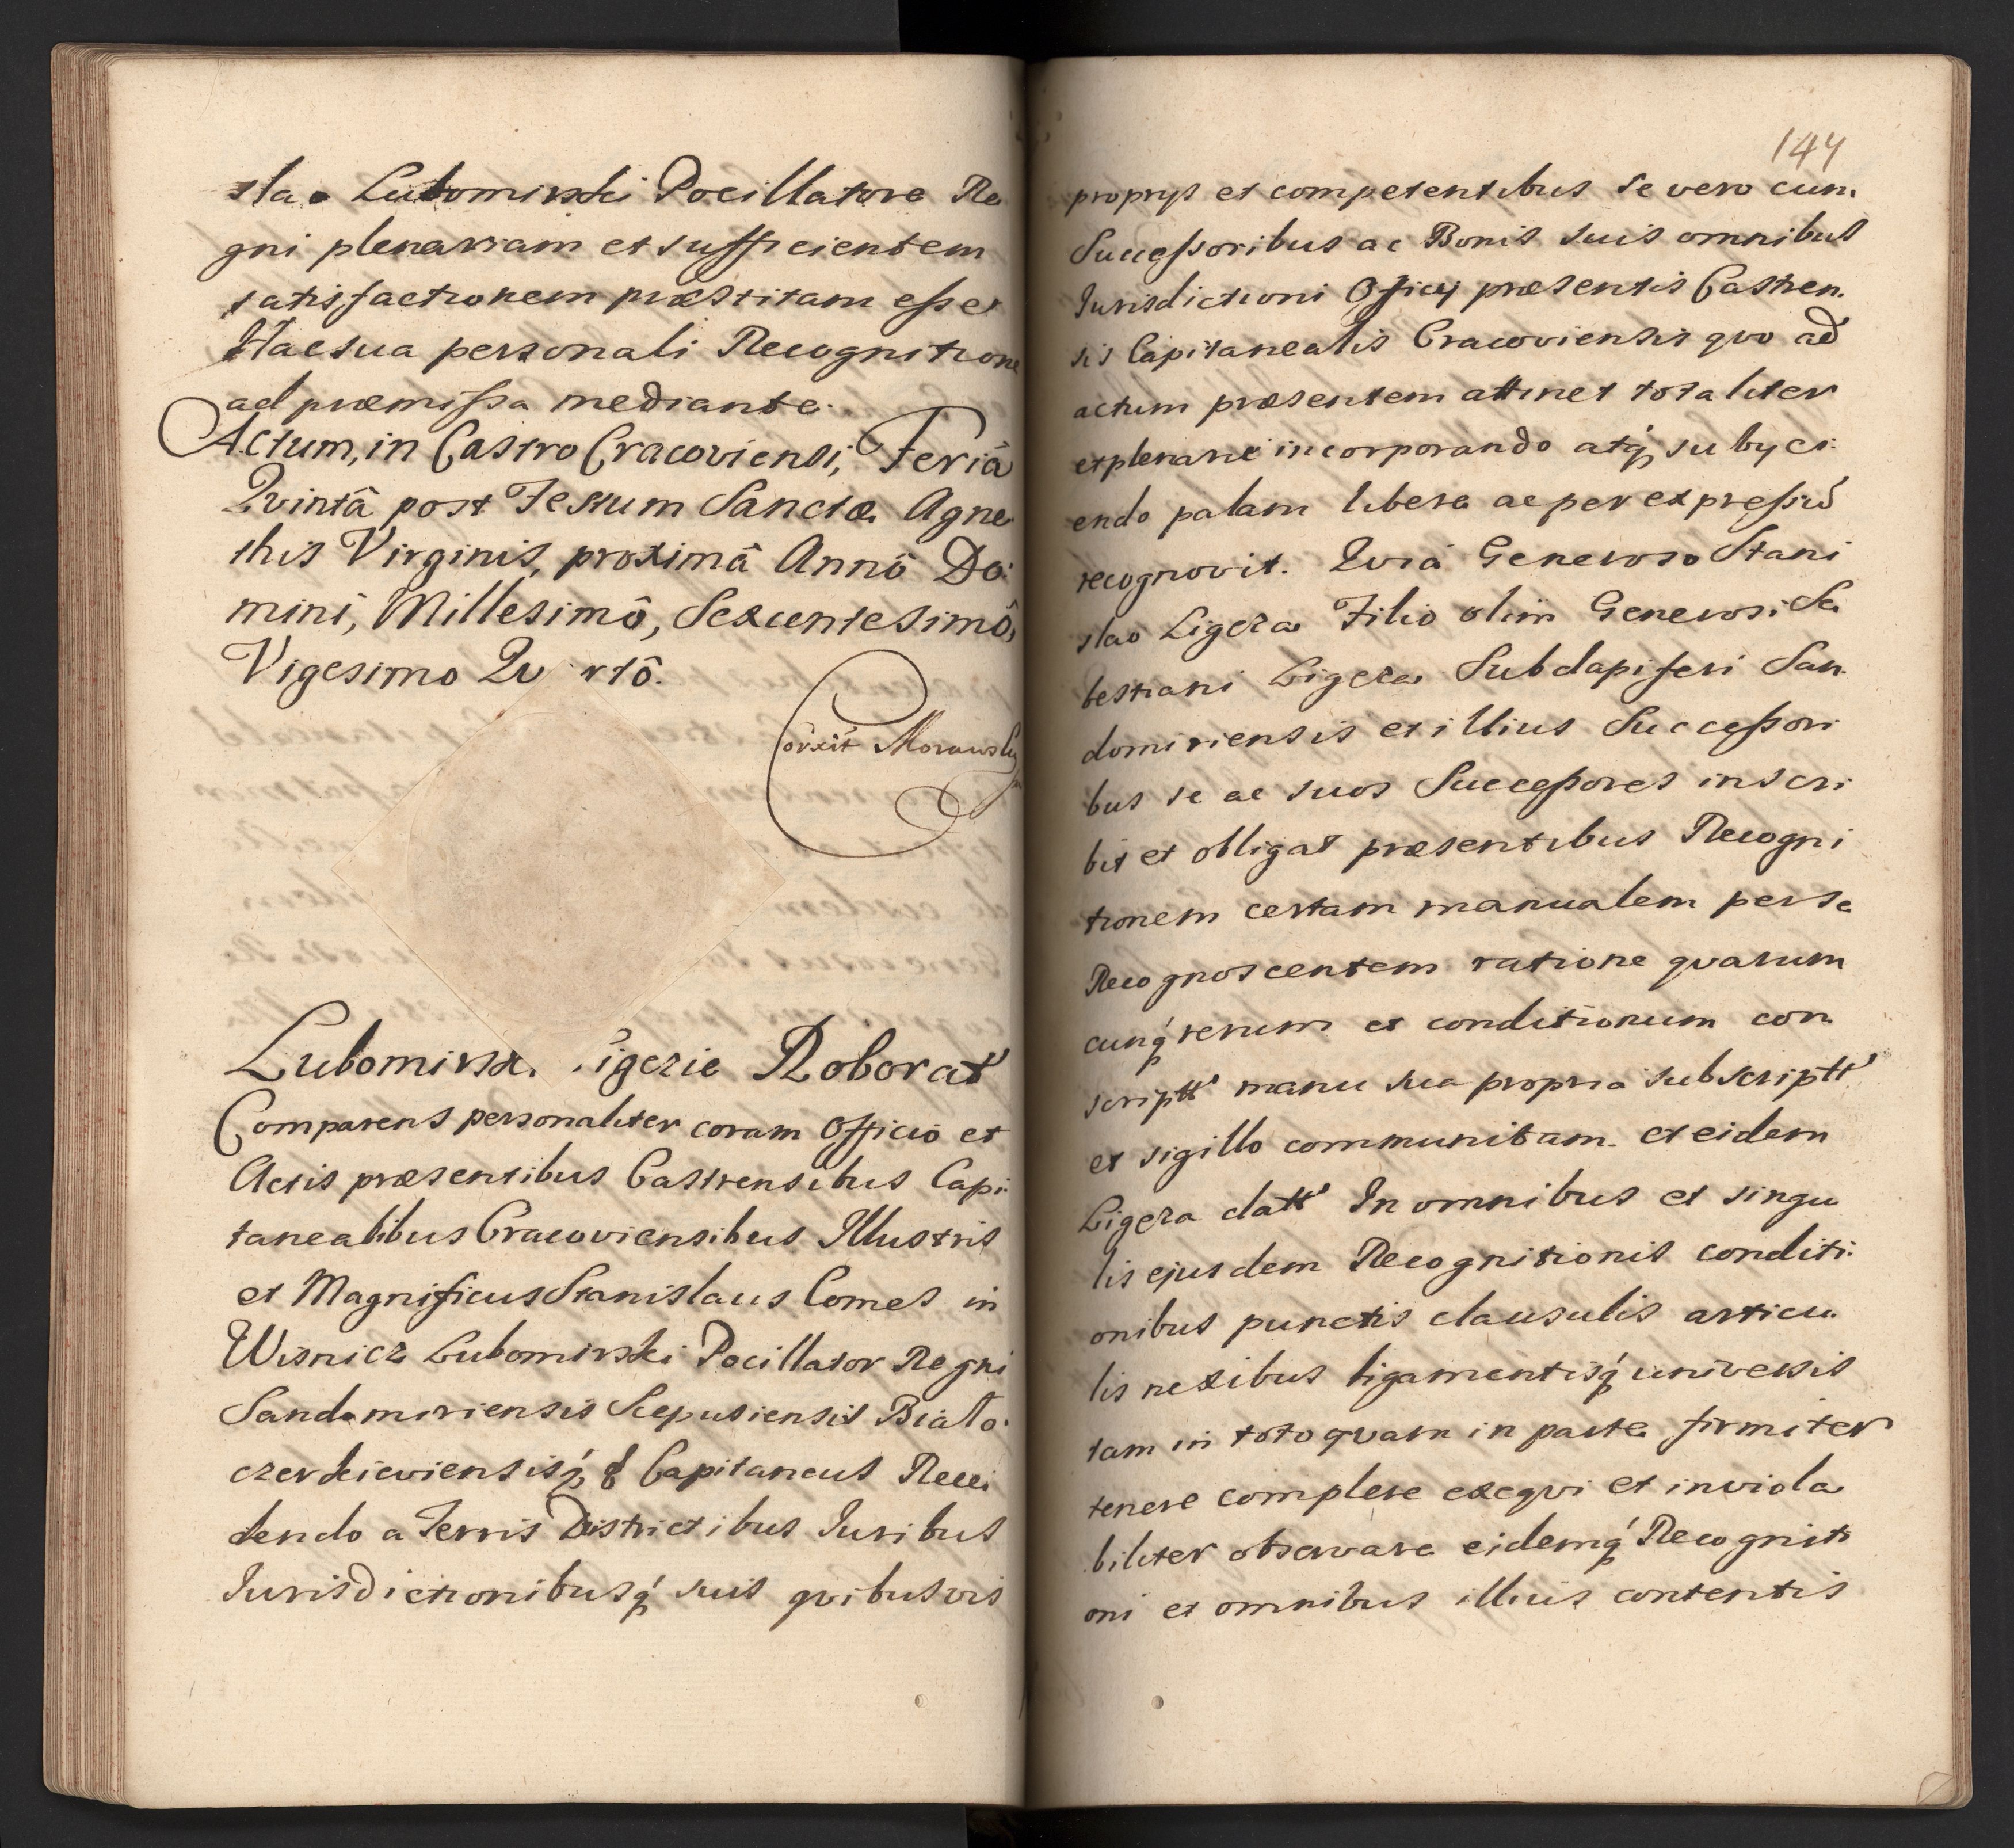 slao Lubomirski Pocillatore Re
gni plenariam et sufficientem
satisfactionem præstitam esse
Hac sua personali Recognitione
ad præmissa mediante.
Actum, in Castro Cracoviensi, Feriâ
Qvintâ post Festum Sanctæ Agne
this Virginis, proximâ Annô Do:
mini, Millesimô, Sexcentesimô,
Vigesimo Qv rtô.
Corxit Morawsky
Lubomirsk igezie Roborat
Comparens personaliter coram Officio et
Actis præsentibus Castrensibus Capi:
tanealibus Cracoviensibus Illustris
et Magnificus Stanislaus Comes in
Wisnicz Lubomirski Pocillator Regni
Sandomiriensis Scepusiensis Biało:
czerkieviensisq́ Capitaneus Rece
dendo a Terris Districtibus Iuribus
Iurisdictionibusq́ suis qvibusvis
144
proprys et competentibus se vero cum
Successoribus ac Bonis suis omnibus
Iurisdictioni Officy præsentis Castren.
sis Capitanealis Cracoviensis qvo ad
actum præsentem attinet totaliter
et plenarie incorporando atq́ subyci:
endo palam libere ac per expressũ
recognovit. Qvia Generoso Stani
slao Ligeza Filio olim Generosi Se
bestiani Ligeza Subdapiferi San.
domiriensis et illius Successori
bus se ac suos Successores inscri
bit et obligat præsentibus Recogni
tionem certam manualem per se
Recognoscentem ratione qvarum
cunq́ rerum et conditionum con
scriptt manu sua propria subscriptt
et sigillo communitam. et eidem
Ligeza datt In omnibus et singu
lis ejusdem Recognitionis conditi:
onibus punctis clausulis articu.
lis nexibus ligamentisq́ universis
tam in toto qvam in parte firmiter
tenere complere exeqvi et inviola
biliter observare eidemq́ Recogniti
oni et omnibus illius contentis